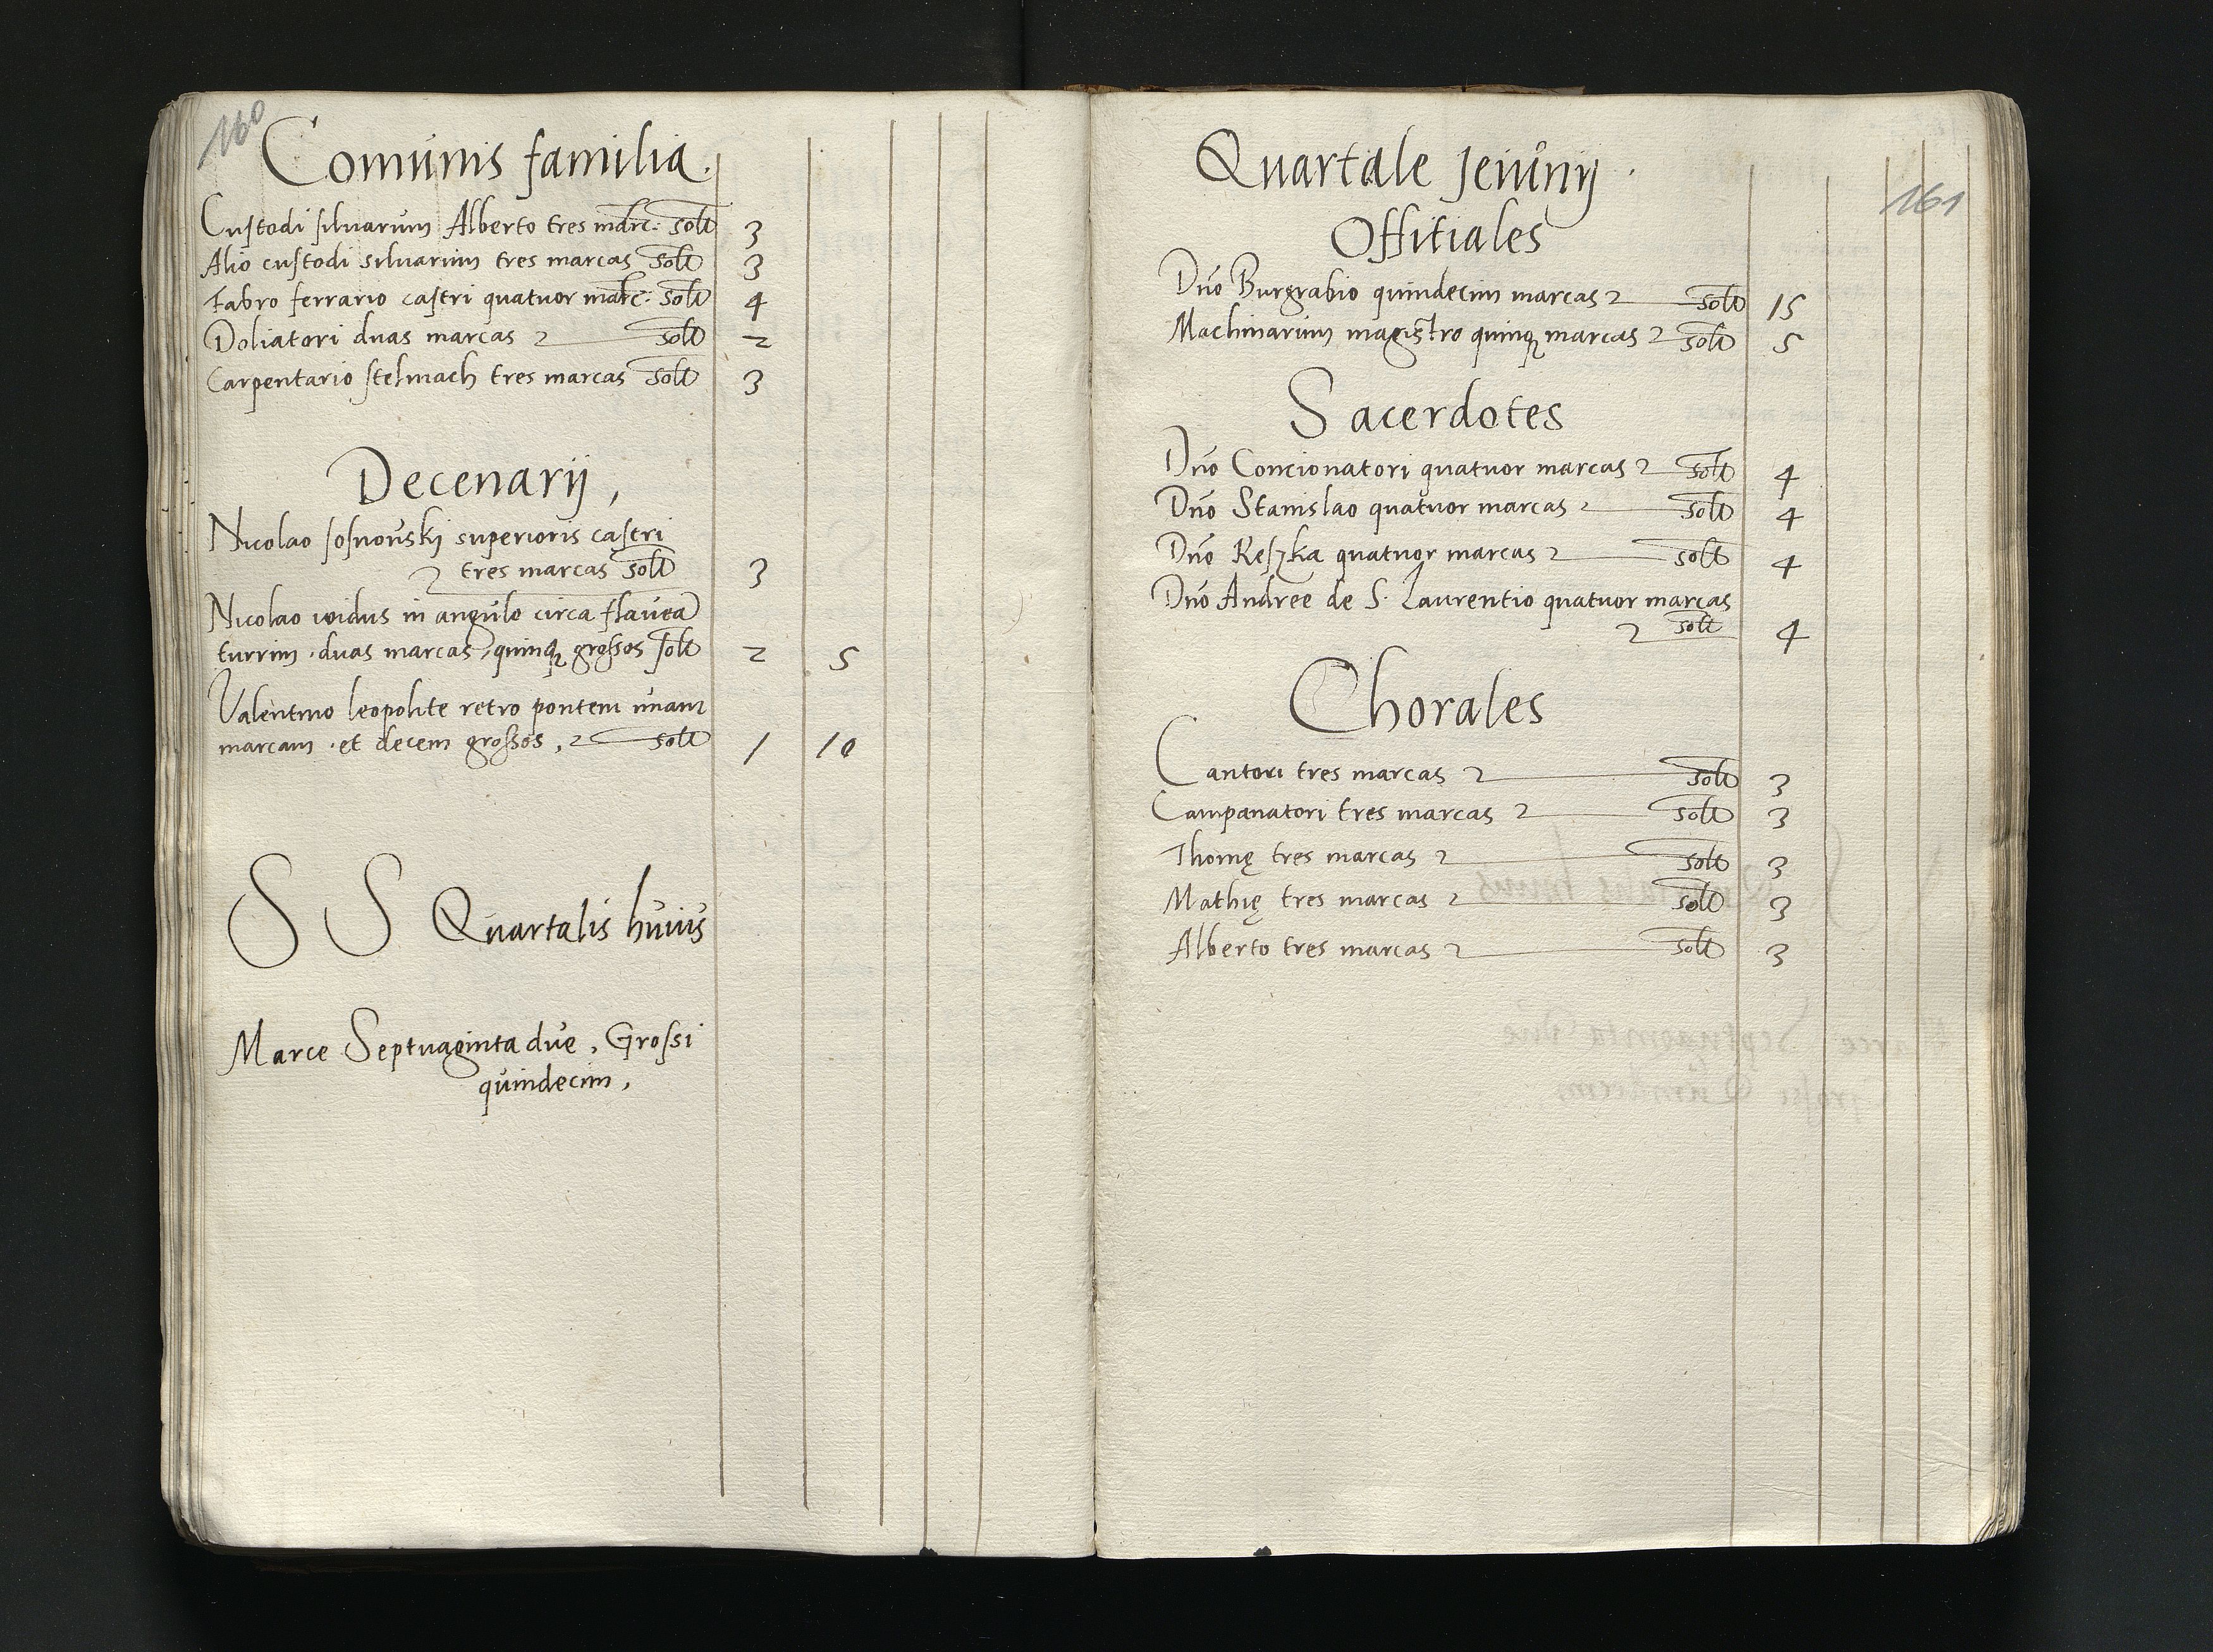 160
Comunis familia.
Custodi siluarum Alberto tres marc: solt 3
Alio custodi siluarum tres marcas solt 3
Fabro ferrario castri quatuor marc: solt 4
Doliatori duas marcas solt 2
Carpentario stelmach tres marcas solt 3
Decenarij,
Nicolao sosnouskj superioris castri
tres marcas solt 3
Nicolao widus in angulo circa flauea
turrim duas marcas, quinq grossos solt 2 5
Valentino leopolite retro pontem unam
marcam et decem grossos, solt 1 10
S S Quartalis huius
Marce Septuaginta due, Grossi
quindecim,
161
Quartale Jeiunij
Offitiales
Dno Burgrabio quindecim marcas solt 15
Machinarum magistro quinq marcas solt 5
Sacerdotes
Dno Concionatori quatuor marcas solt 4
Dno Stanislao quatuor marcas solt 4
Dno Keszka quatuor marcas solt 4
Dno Andree de S. Laurentio quatuor marcas
solt 4
Chorales
Cantori tres marcas solt 3
Campanatori tres marcas solt 3
Thomę tres marcas solt 3
Mathię tres marcas solt 3
Alberto tres marcas solt 3